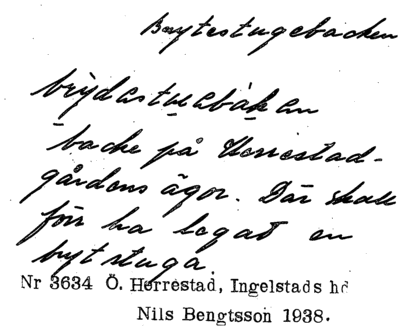 Brytestugebacken
brýdastuabákan
backe på Herrestad-
gårdens ägor. Där skall
förr ha legat en
brytstuga.
Nr 3634 Ö. Herrestad, Ingelstads hd
Nils Bengtsson 1938.